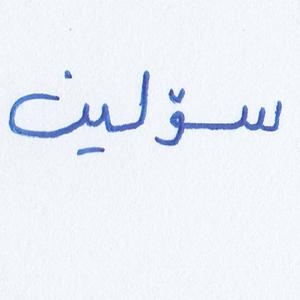 سۆلین